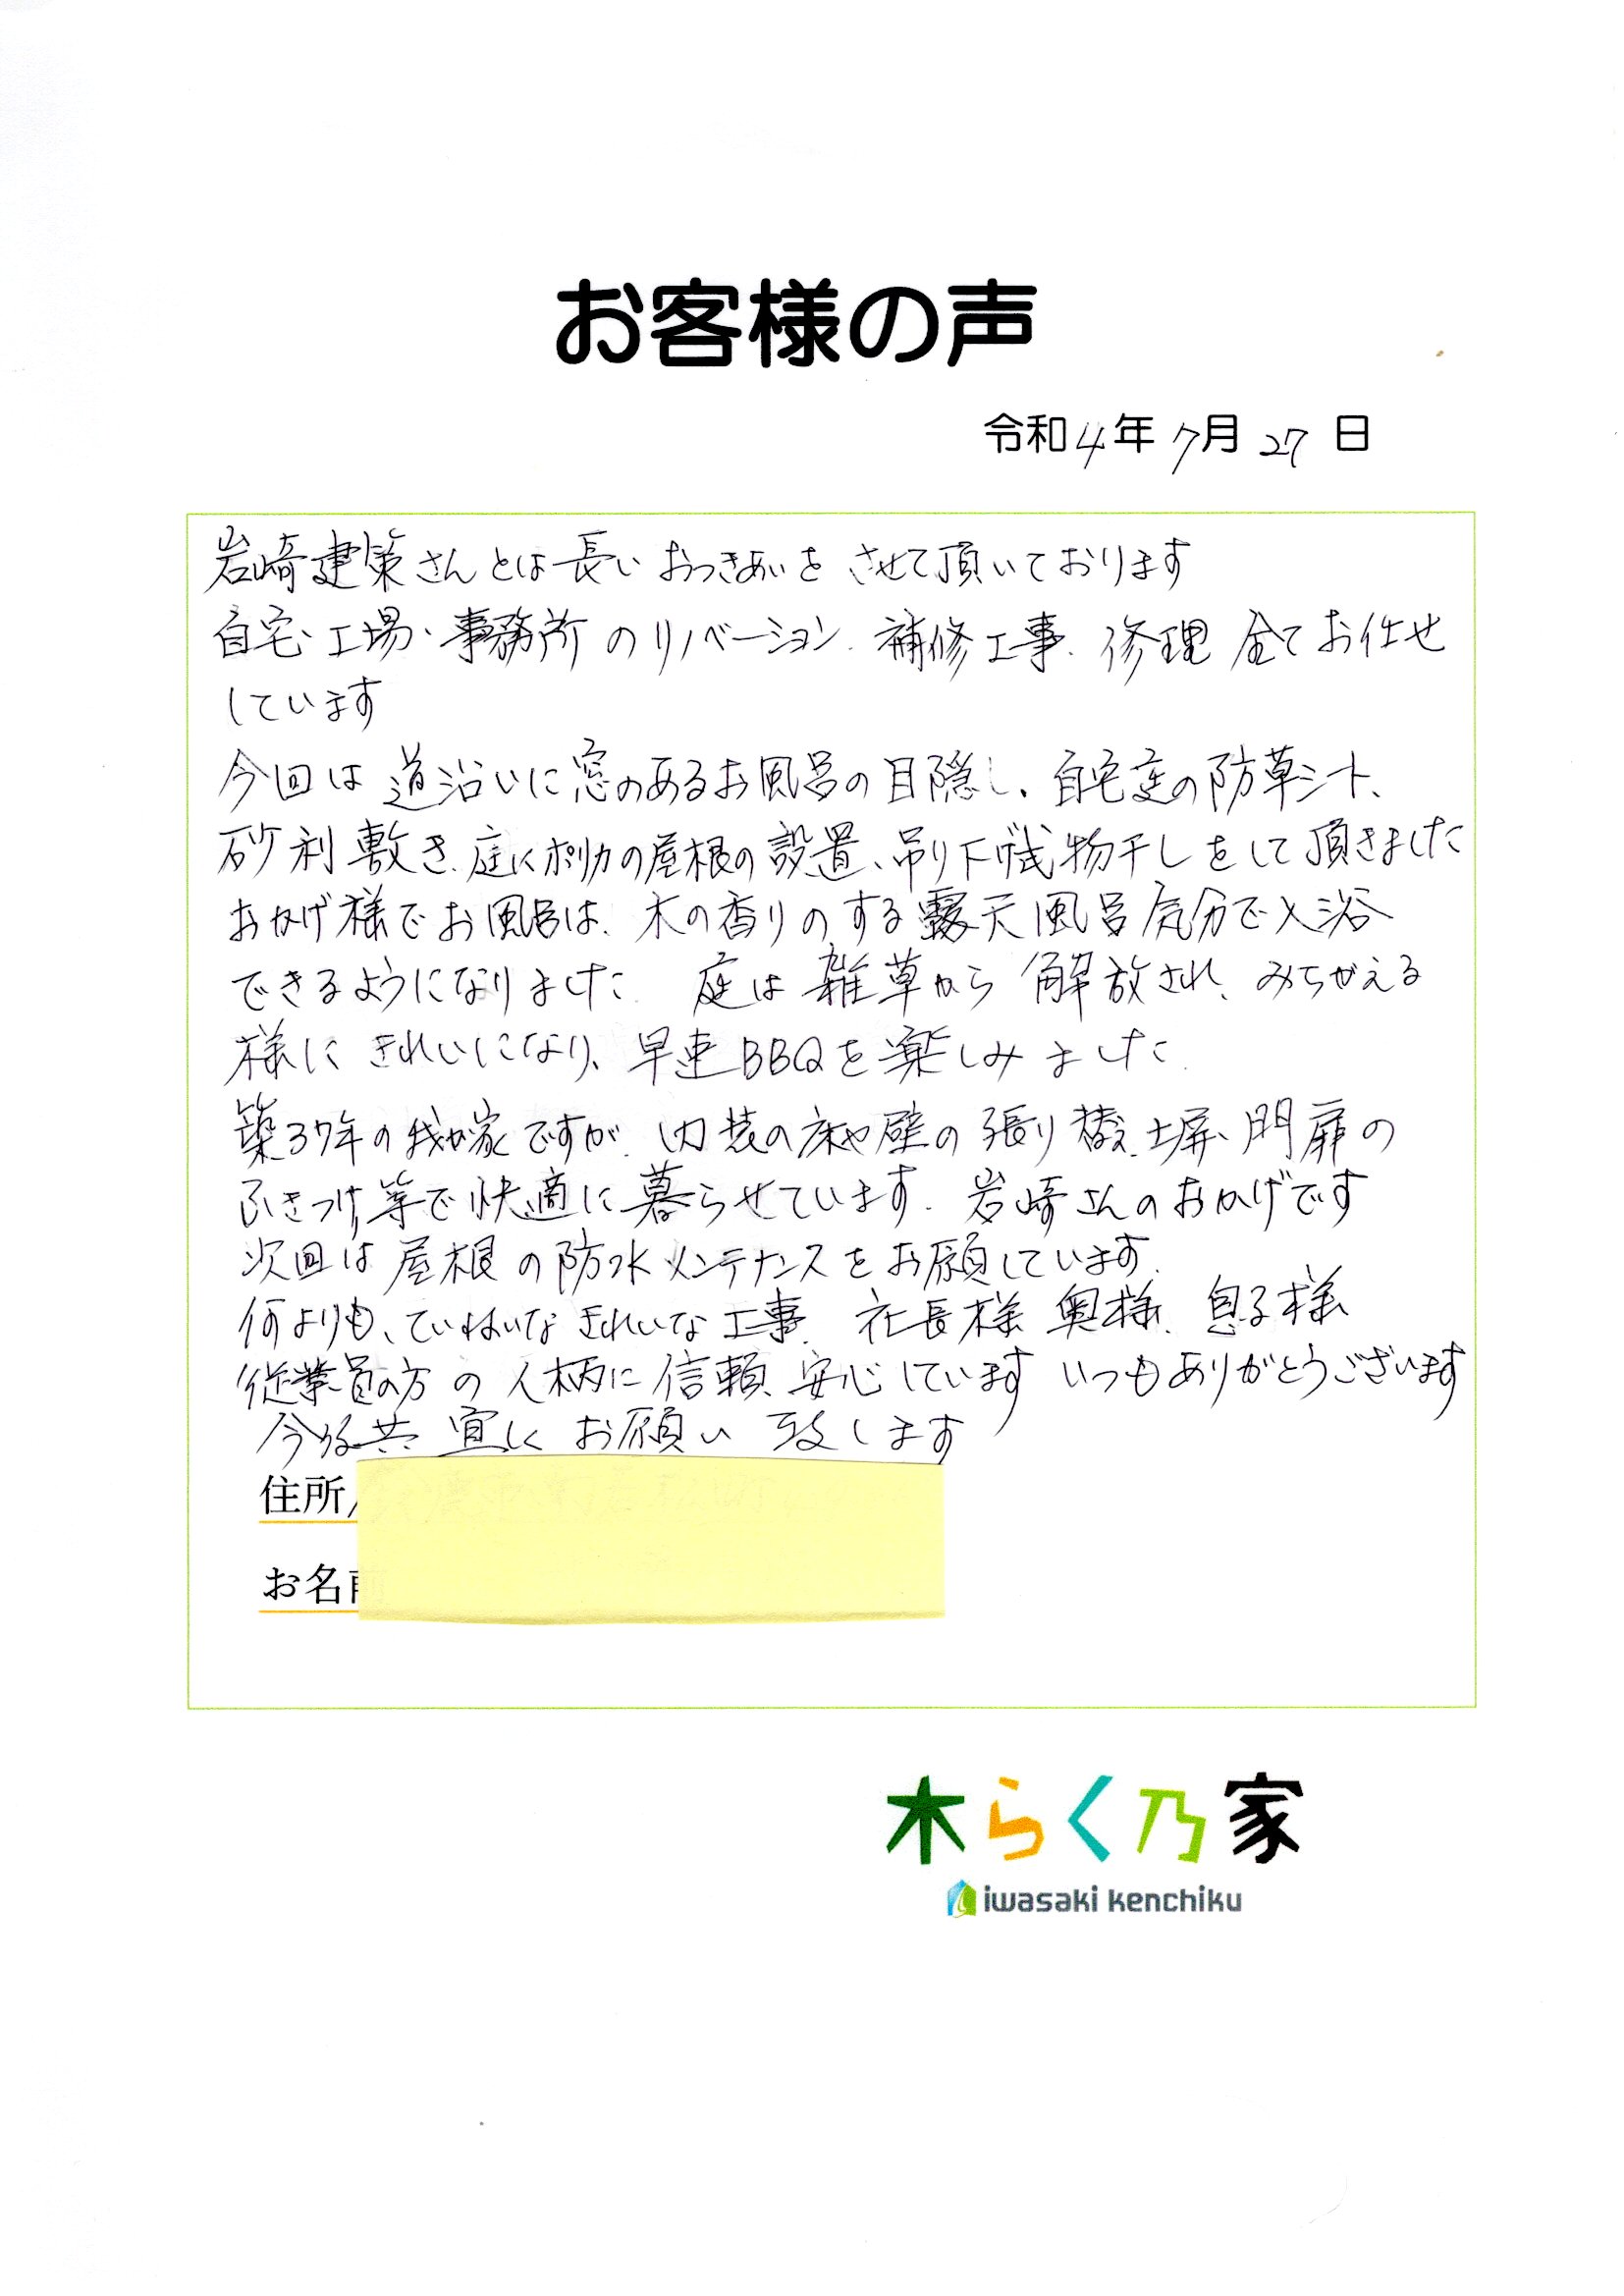 お客様の声
令和4年7月27日
岩崎建築さんとは長いおつきあいをさせて頂いております
自宅・工場・事務所のリノベーション、補修工事、修理 全てお任せ
しています
今回は道沿いに窓のあるお風呂の目隠し、自宅庭の防草シート、
砂利敷き、庭にポリカの屋根の設置、吊り下げ式物干しをして頂きました
おかげ様でお風呂は、木の香りのする露天風呂気分で入浴
できるようになりました。庭は雑草から解放され、みちがえる
様にきれいになり、早速BBQを楽しみました。
築37年の我が家ですが、内装の床や壁の張り替え、塀、門扉の
ふきつけ等で快適に暮らせています。岩崎さんのおかげです
次回は屋根の防水メンテナンスをお願しています。
何よりも、ていねいなきれいな工事、社長様 奥様、息子様
従業員の方の人柄に信頼、安心しています いつもありがとうございます
今後共宜しくお願い致します
住所
お名前
木らく乃家
iwasaki kenchiku